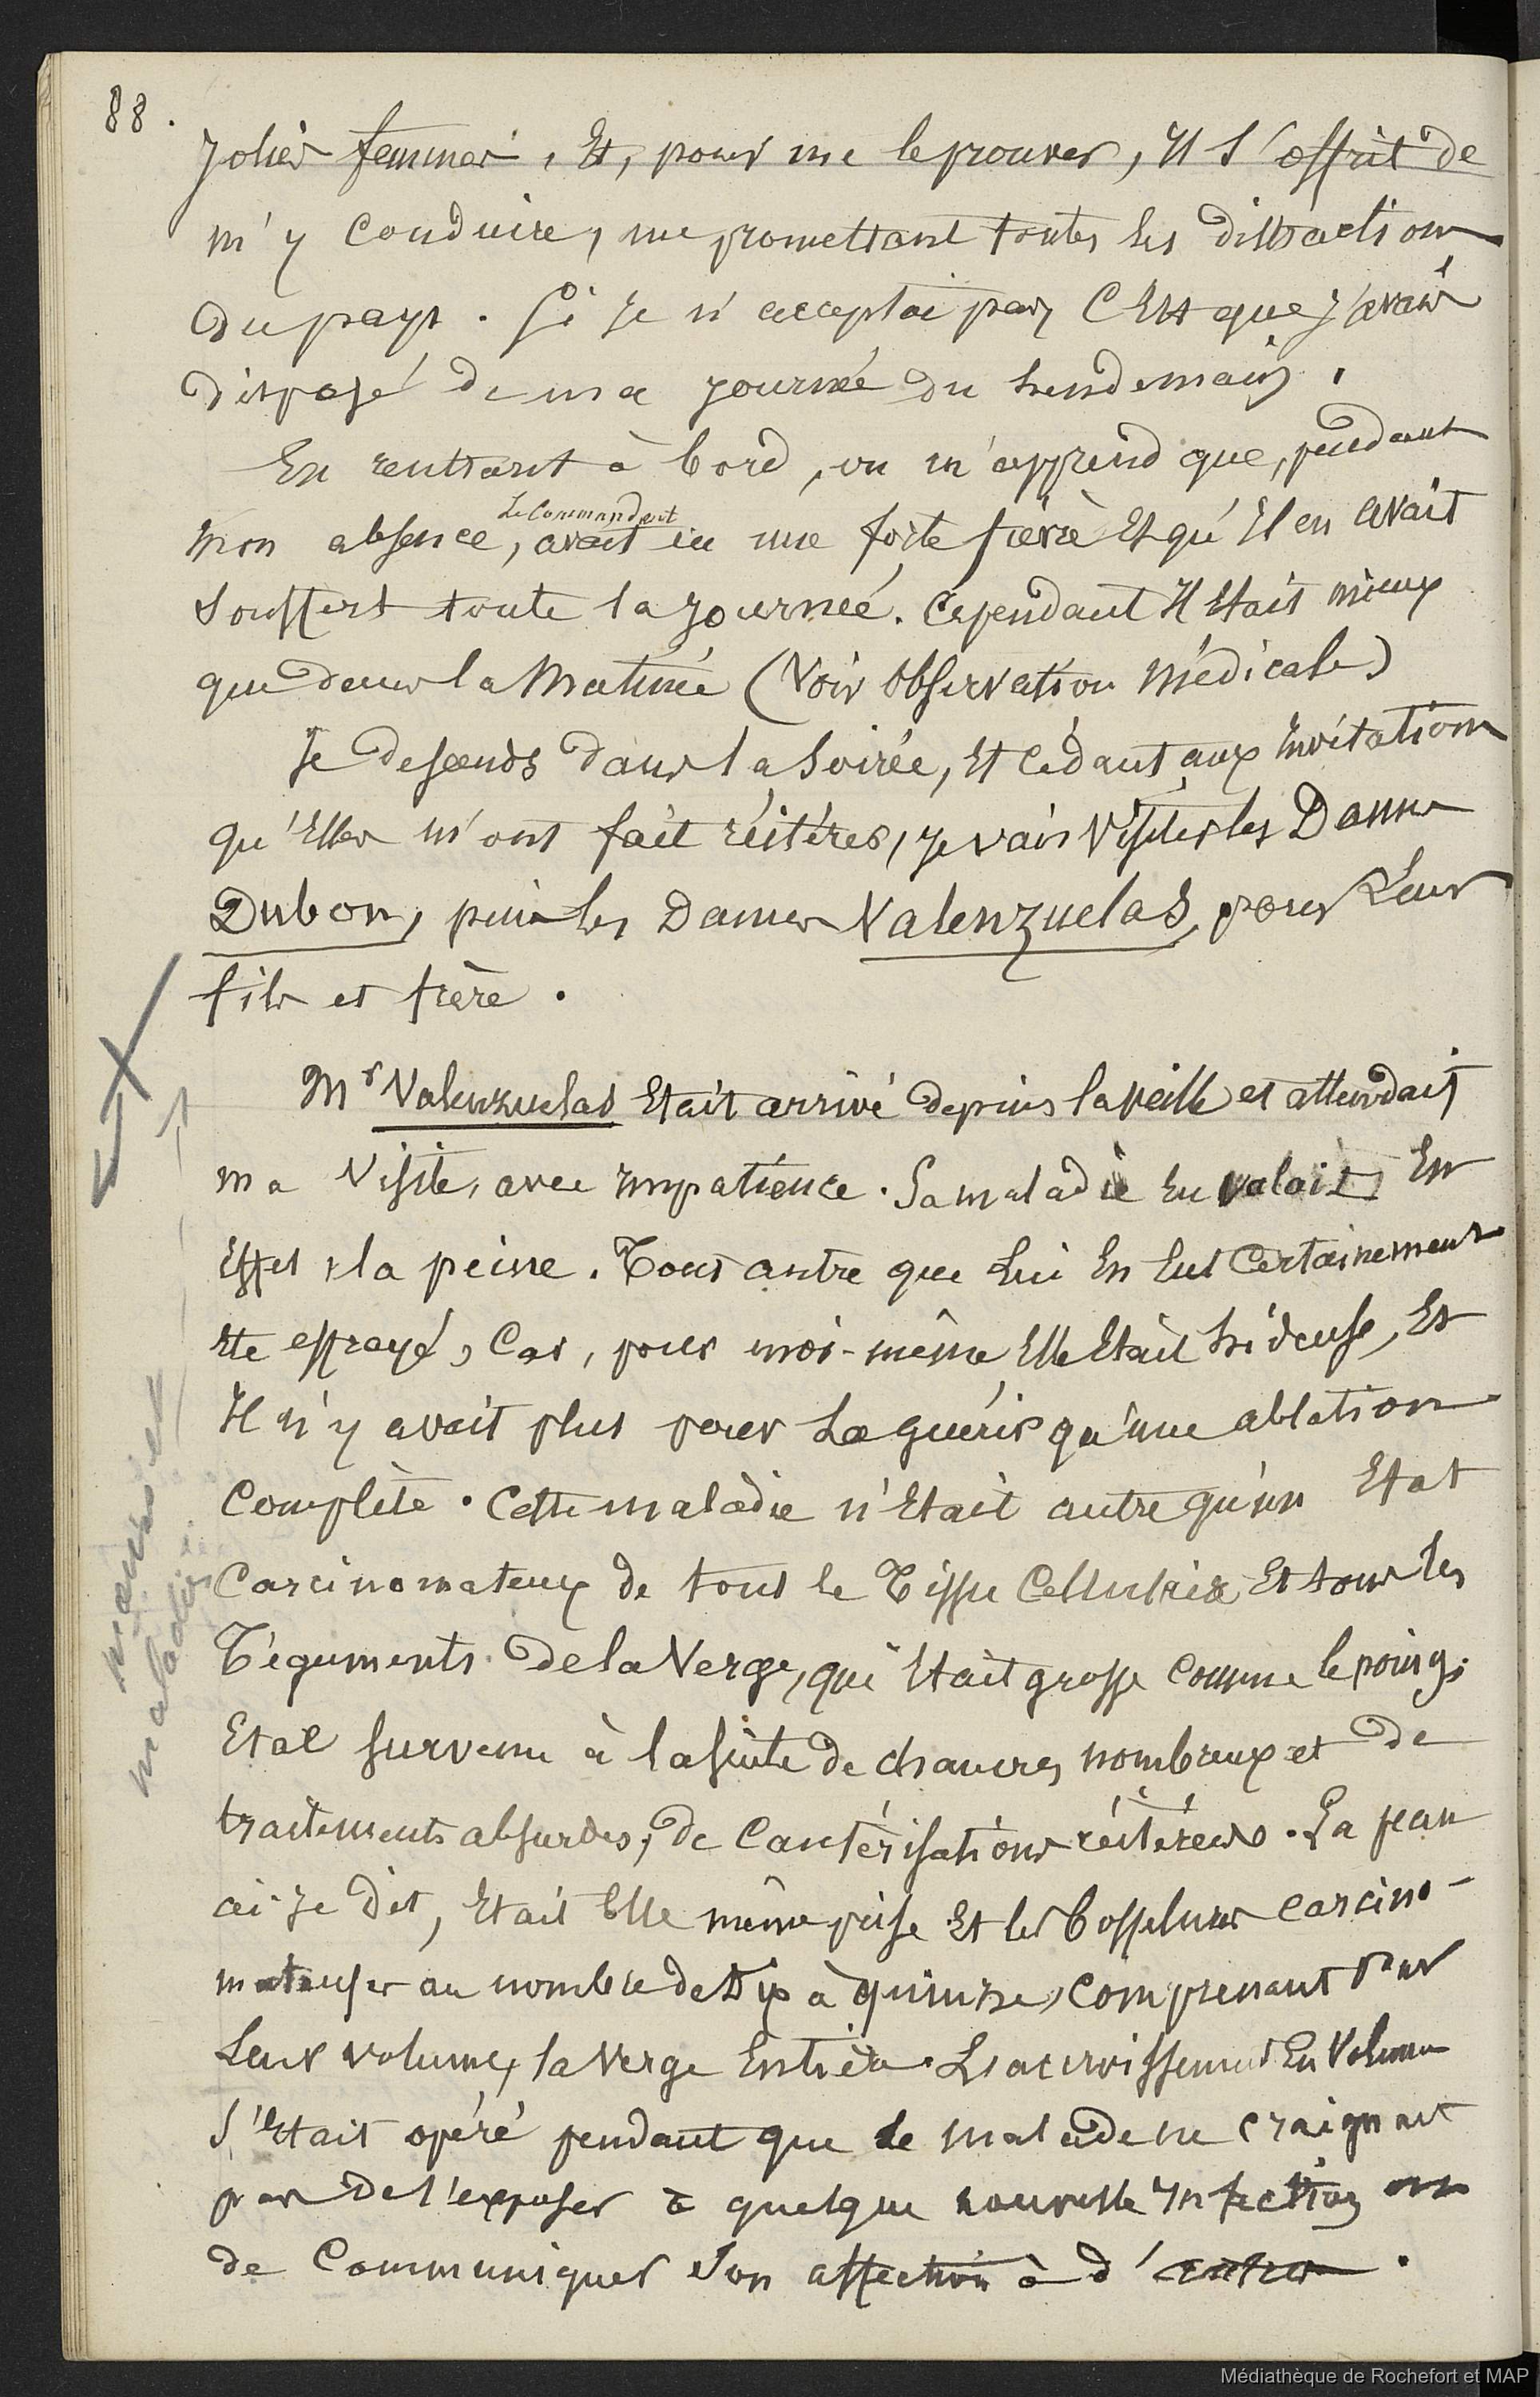 88.
Jolies femmes, Et, pour me le prouver, Il s'offrit de
m'y Conduire, me promettant toutes les distractions
du pays. Si Je n'acceptai pas, C'Est que J'avais
disposé de ma journée du Lendemain.
En rentrant à bord, on m'apprend que, pendant
Le Commandant
mon absence, avait eu une forte fièvre Et qu'Il en avait
Souffert toute la Journeé. Cependant Il Etait mieux
que dans la Matinée (Voir Observation Médicale)
Je descends dans la Soirée, Et Cédant aux Invitations
qu'Elles m'ont fait réitérer, Je vais Visiter les Dames
Dubon, puis les Dames Valenzuelas, pour Leur
fils et frère.
Mr Valenzuelas Etait arrivé depuis la veille et attendait
ma Visite, avec Impatience. Sa maladie En valait En
Effet la peine. Tout autre que Lui En Eut Certainement
Eté effrayé, Car, pour moi-même Elle Etait hideuse, Et
Il n'y avait plus pour La guérir qu'une ablation
Complète. Cette maladie n'Etait autre qu'un Etat
Carcinomateux de tout le Tissu Cellulaire Et tous les
Téguments de la Verge, qui Etait grosse Comme le poing;
Etat Survenu à la Suite de chancres nombreux et de
traitements absurdes, de Cautérisations réitérées. La peau
ai-Je dit, Etait Elle même prise Et les bosselures Carcino-
mateuses au nombre de Dix à quinze, Comprenant Par
Leur volume, la Verge Entière. L'accroissement En Volume
S'Etait opéré pendant que le malade ne Craignait
pas de s'exposer à quelque nouvelle Infection ou
de Communiquer Son affection à d'autres.
mauvaise
maladie
Médiathèque de Rochefort et MAP